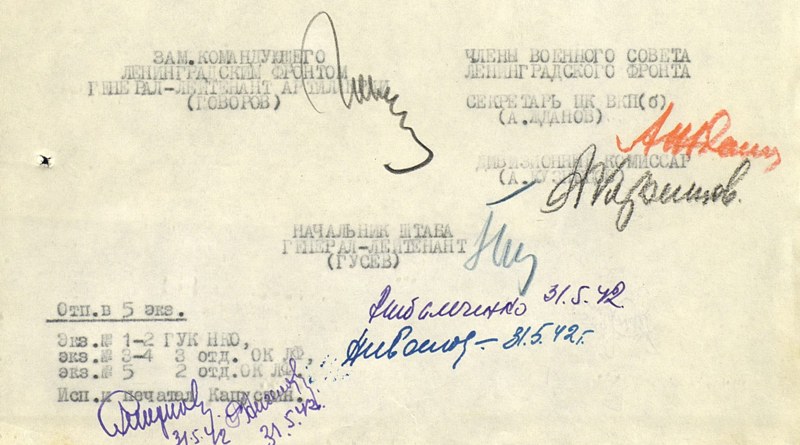 ЗАМ.КОМАНДУЮЩЕГО
ЛЕНИНГРАДСКИМ ФРОНТОМ
ГЕНЕРАЛ-ЛЕЙТЕНАНТ АРТИЛЛЕРИИ
(ГОВОРОВ)
ЧЛЕНЫ ВОЕННОГО СОВЕТА
ЛЕНИНГРАДСКОГО ФРОНТА
СЕКРЕТАРЬ ЦК ВКП(б)
(А.ЖДАНОВ)
ДИВИЗИОННЫЙ КОМИССАР
(А.КУЗНЕЦОВ)
А.Кузнецов.
НАЧАЛЬНИК ШТАБА
ГЕНЕРАЛ-ЛЕЙТЕНАНТ
(ГУСЕВ)
31.5.42
Отп.в 5 экз.
Экз.№ 1-2 ГУК НКО,
экз.№ 3-4 3 отд. ОК ЛФ,
31.5.42г.
экз.№ 5 2 отд.ОК ЛФ.
Исп.и печатал
31.5.42
31.5.42.